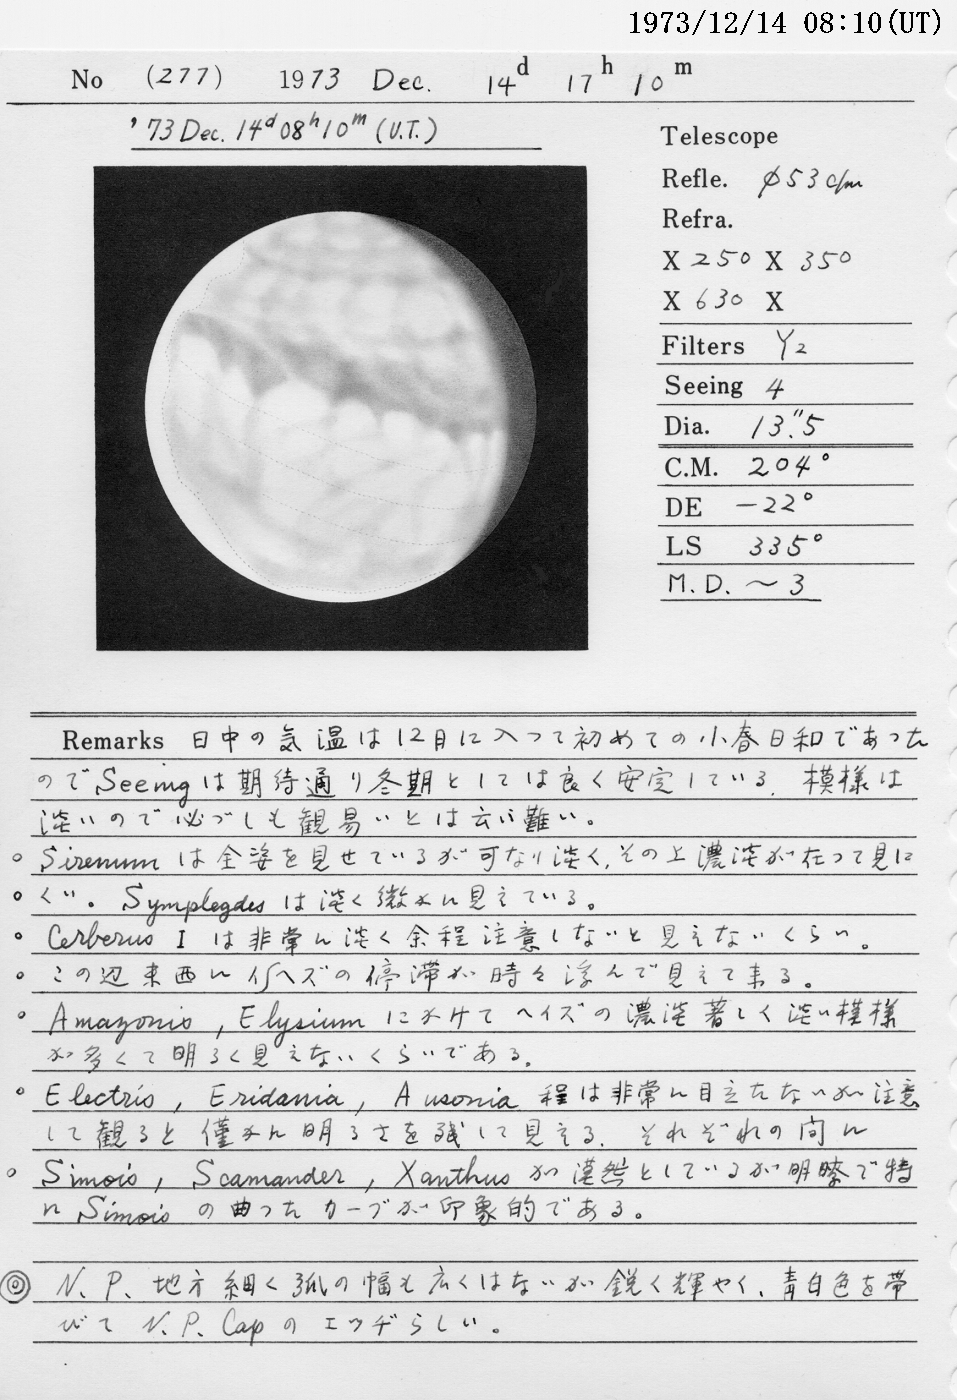 1973/12/14 08:10(UT)
No (277) 1973 Dec. 14d 17h 10m
'73 Dec. 14d 08h 10m (U.T.)
Telescope
Refle. φ53c/m
Refra.
X 250 X 350
X 630 X
Filters Y2
Seeing 4
Dia. 13."5
C.M. 204°
DE −22°
LS 335°
M.D. ~3
Remarks 日中の気温は12月に入って初めての小春日和であった
のでSeeingは期待通り冬期としては良く安定している. 模様は
淡いので必づしも観易いとは云い難い。
○ Sirenumは全姿を見せているが可なり淡く,その上濃淡が在って見に
○ くい。Symplegdesは淡く微かに見えている。
○ Cerberus Iは非常に淡く余程注意しないと見えないくらい。
○ この辺東西にヘズの停滞が時々浮んで見えて来る。
○ Amazonis, Elysiumにかけてヘイズの濃淡著しく淡い模様
が多くて明るく見えないくらいである.
○ Electris, Eridania, Ausonia 程は非常に目立たないが注意
して観ると僅かに明るさを残して見える. それぞれの間に
○ Simois, Scamander, Xanthusが漠然としているが明瞭で特
に Simoisの曲ったカーブが印象的である。
◎ N.P.地方細く弧の幅も広くはないが鋭く輝やく.青白色を帯
びて N.P. Capのエッヂらしい。